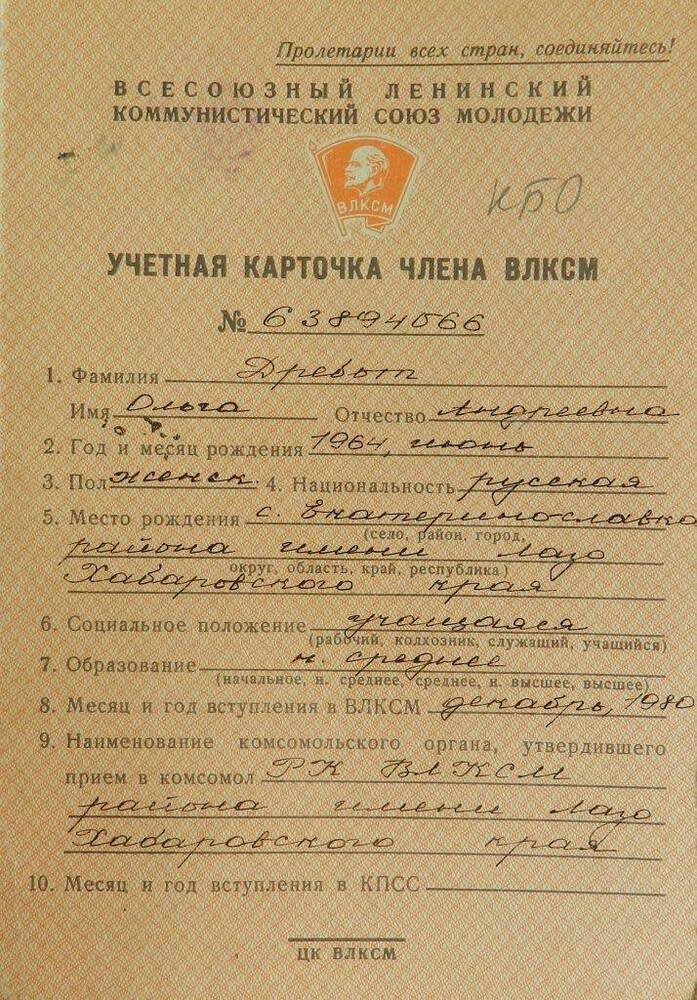 Пролетарии всех стран, соединяйтесь!
ВСЕСОЮЗНЫЙ ЛЕНИНСКИЙ
КОММУНИСТИЧЕСКИЙ СОЮЗ МОЛОДЕЖИ
ВЛКСМ
КБО
УЧЕТНАЯ КАРТОЧКА ЧЛЕНА ВЛКСМ
№ 63894566
1. Фамилия Древот
Имя Ольга Отчество Андреевна
2. Год и месяц рождения 1964, июнь
3. Пол женск. 4. Национальность русская
5. Место рождения с. Екатеринославка
(село, район, город,
района имени Лазо
округ, область, край, республика)
Хабаровского края
6. Социальное положение учащаяся
(рабочий, колхозник, служащий, учащийся)
7. Образование н. среднее
(начальное, н. среднее, среднее, н. высшее, высшее)
8. Месяц и год вступления в ВЛКСМ декабрь, 1980
9. Наименование комсомольского органа, утвердившего
прием в комсомол РК ВЛКСМ
района имени Лазо
Хабаровского края
10. Месяц и год вступления в КПСС
ЦК ВЛКСМ